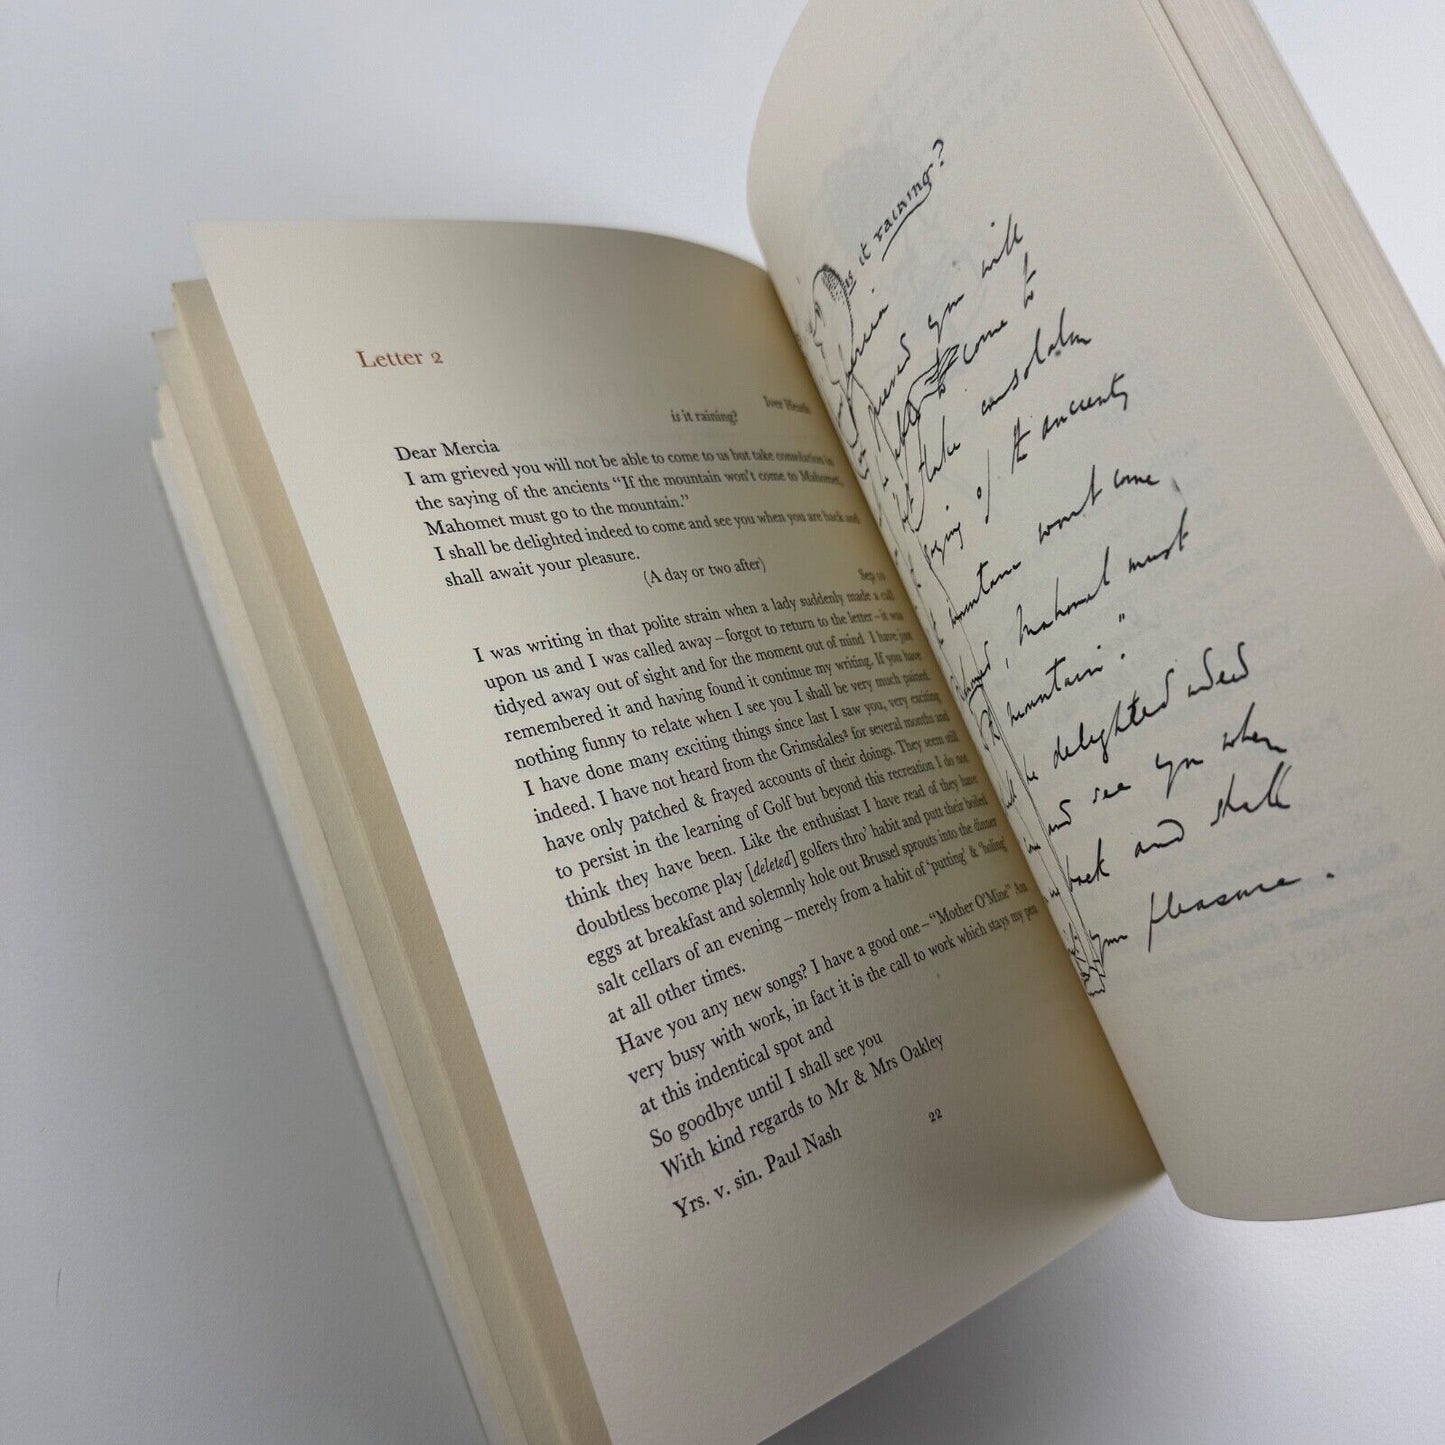 Letter 2
Iver Heath
is it raining?
Dear Mercia
I am grieved you will not be able to come to us but take consolation in
the saying of the ancients “If the mountain won't come to Mahomet,
Mahomet must go to the mountain.”
I shall be delighted indeed to come and see you when you are back and
shall await your pleasure.
(A day or two after)
Sep 10
I was writing in that polite strain when a lady suddenly made a call
upon us and I was called away – forgot to return to the letter – it was
tidyed away out of sight and for the moment out of mind. I have just
remembered it and having found it continue my writing. If you have
nothing funny to relate when I see you I shall be very much pained.
I have done many exciting things since last I saw you, very exciting
indeed. I have not heard from the Grimsdales² for several months and
have only patched & frayed accounts of their doings. They seem still
to persist in the learning of Golf but beyond this recreation I do not
think they have been. Like the enthusiast I have read of they have
doubtless become play [deleted] golfers thro' habit and putt their boiled
eggs at breakfast and solemnly hole out Brussel sprouts into the dinner
salt cellars of an evening – merely from a habit of ‘putting’ & ‘holing’
at all other times.
Have you any new songs? I have a good one – “Mother O'Mine” Am
very busy with work, in fact it is the call to work which stays my pen
at this indentical spot and
So goodbye until I shall see you
With kind regards to Mr & Mrs Oakley
Yrs. v. sin. Paul Nash
22
is it raining?
Mercia
grieved you will
come to
take consolation
saying of the ancients
mountain won't come
Mahomed, Mahomet must
mountain."
be delighted indeed
and see you when
back and shall
your pleasure.